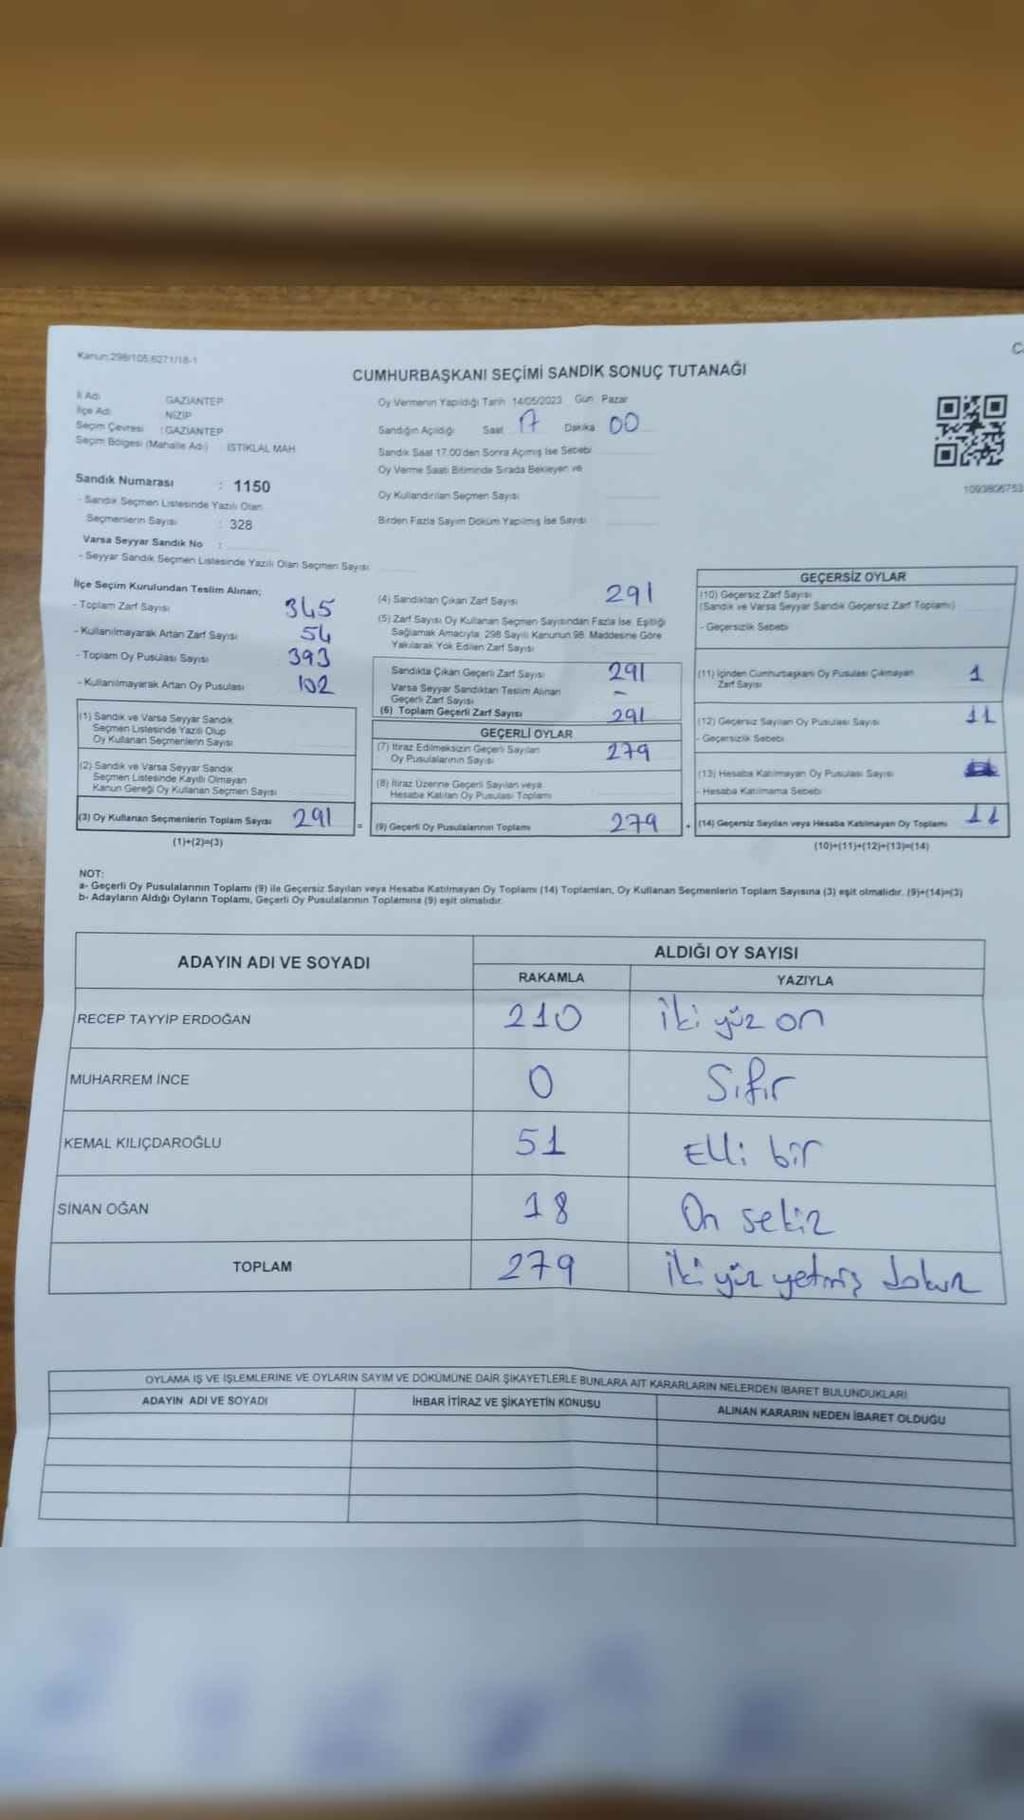 Kanun:298/105;6271/18-1
CUMHURBAŞKANI SEÇİMİ SANDIK SONUÇ TUTANAĞI
İl Adı GAZİANTEP
İlçe Adı NİZİP
Seçim Çevresi : GAZİANTEP
Seçim Bölgesi (Mahalle Adı) İSTİKLAL MAH
Oy Vermenin Yapıldığı Tarih 14/05/2023 Gün Pazar
Sandığın Açıldığı Saat 17 Dakika 00
Sandık Saat 17.00'den Sonra Açılmış İse Sebebi
Oy Verme Saati Bitiminde Sırada Bekleyen ve
Oy Kullandırılan Seçmen Sayısı
Birden Fazla Sayım Döküm Yapılmış İse Sayısı
1093806753
Sandık Numarası : 1150
- Sandık Seçmen Listesinde Yazılı Olan
Seçmenlerin Sayısı : 328
Varsa Seyyar Sandık No :
- Seyyar Sandık Seçmen Listesinde Yazılı Olan Seçmen Sayısı
İlçe Seçim Kurulundan Teslim Alınan;
- Toplam Zarf Sayısı 345
- Kullanılmayarak Artan Zarf Sayısı 54
- Toplam Oy Pusulası Sayısı 393
- Kullanılmayarak Artan Oy Pusulası 102
(1) Sandık ve Varsa Seyyar Sandık
Seçmen Listesinde Yazılı Olup
Oy Kullanan Seçmenlerin Sayısı
(2) Sandık ve Varsa Seyyar Sandık
Seçmen Listesinde Kayıtlı Olmayan
Kanun Gereği Oy Kullanan Seçmen Sayısı
(3) Oy Kullanan Seçmenlerin Toplam Sayısı 291
(1)+(2)=(3)
(4) Sandıktan Çıkan Zarf Sayısı 291
(5) Zarf Sayısı Oy Kullanan Seçmen Sayısından Fazla İse, Eşitliği
Sağlamak Amacıyla, 298 Sayılı Kanunun 98. Maddesine Göre
Yakılarak Yok Edilen Zarf Sayısı
Sandıkta Çıkan Geçerli Zarf Sayısı 291
Varsa Seyyar Sandıktan Teslim Alınan
Geçerli Zarf Sayısı -
(6) Toplam Geçerli Zarf Sayısı 291
GEÇERLİ OYLAR
(7) İtiraz Edilmeksizin Geçerli Sayılan
Oy Pusulalarının Sayısı 279
(8) İtiraz Üzerine Geçerli Sayılan veya
Hesaba Katılan Oy Pusulası Toplamı
(9) Geçerli Oy Pusulalarının Toplamı 279
GEÇERSİZ OYLAR
(10) Geçersiz Zarf Sayısı
(Sandık ve Varsa Seyyar Sandık Geçersiz Zarf Toplamı)
- Geçersizlik Sebebi
(11) İçinden Cumhurbaşkanı Oy Pusulası Çıkmayan
Zarf Sayısı 1
(12) Geçersiz Sayılan Oy Pusulası Sayısı 11
- Geçersizlik Sebebi
(13) Hesaba Katılmayan Oy Pusulası Sayısı
- Hesaba Katılmama Sebebi
(14) Geçersiz Sayılan veya Hesaba Katılmayan Oy Toplamı 11
(10)+(11)+(12)+(13)=(14)
NOT:
a- Geçerli Oy Pusulalarının Toplamı (9) ile Geçersiz Sayılan veya Hesaba Katılmayan Oy Toplamı (14) Toplamları, Oy Kullanan Seçmenlerin Toplam Sayısına (3) eşit olmalıdır. (9)+(14)=(3)
b- Adayların Aldığı Oyların Toplamı, Geçerli Oy Pusulalarının Toplamına (9) eşit olmalıdır.
ADAYIN ADI VE SOYADI ALDIĞI OY SAYISI
RAKAMLA YAZIYLA
RECEP TAYYİP ERDOĞAN 210 İki yüz on
MUHARREM İNCE 0 Sıfır
KEMAL KILIÇDAROĞLU 51 Elli bir
SİNAN OĞAN 18 On sekiz
TOPLAM 279 İki yüz yetmiş dokuz
OYLAMA İŞ VE İŞLEMLERİNE VE OYLARIN SAYIM VE DÖKÜMÜNE DAİR ŞİKAYETLERLE BUNLARA AİT KARARLARIN NELERDEN İBARET BULUNDUKLARI
ADAYIN ADI VE SOYADI İHBAR İTİRAZ VE ŞİKAYETİN KONUSU ALINAN KARARIN NEDEN İBARET OLDUĞU